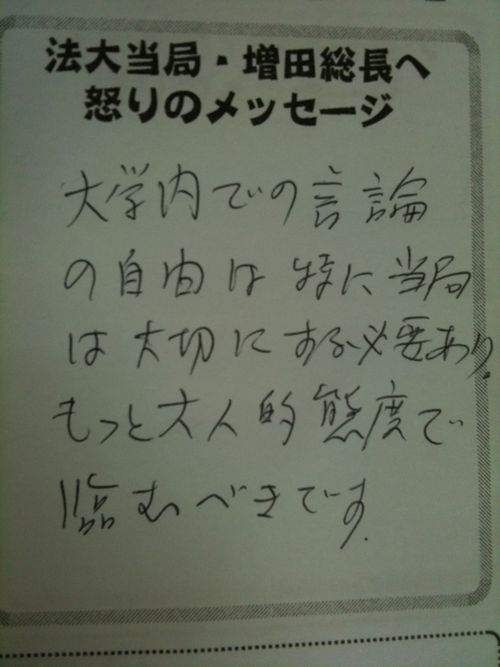 法大当局・増田総長へ
怒りのメッセージ
大学内での言論
の自由は特に当局
は大切にする必要あり.
もっと大人的態度で
臨むべきです.